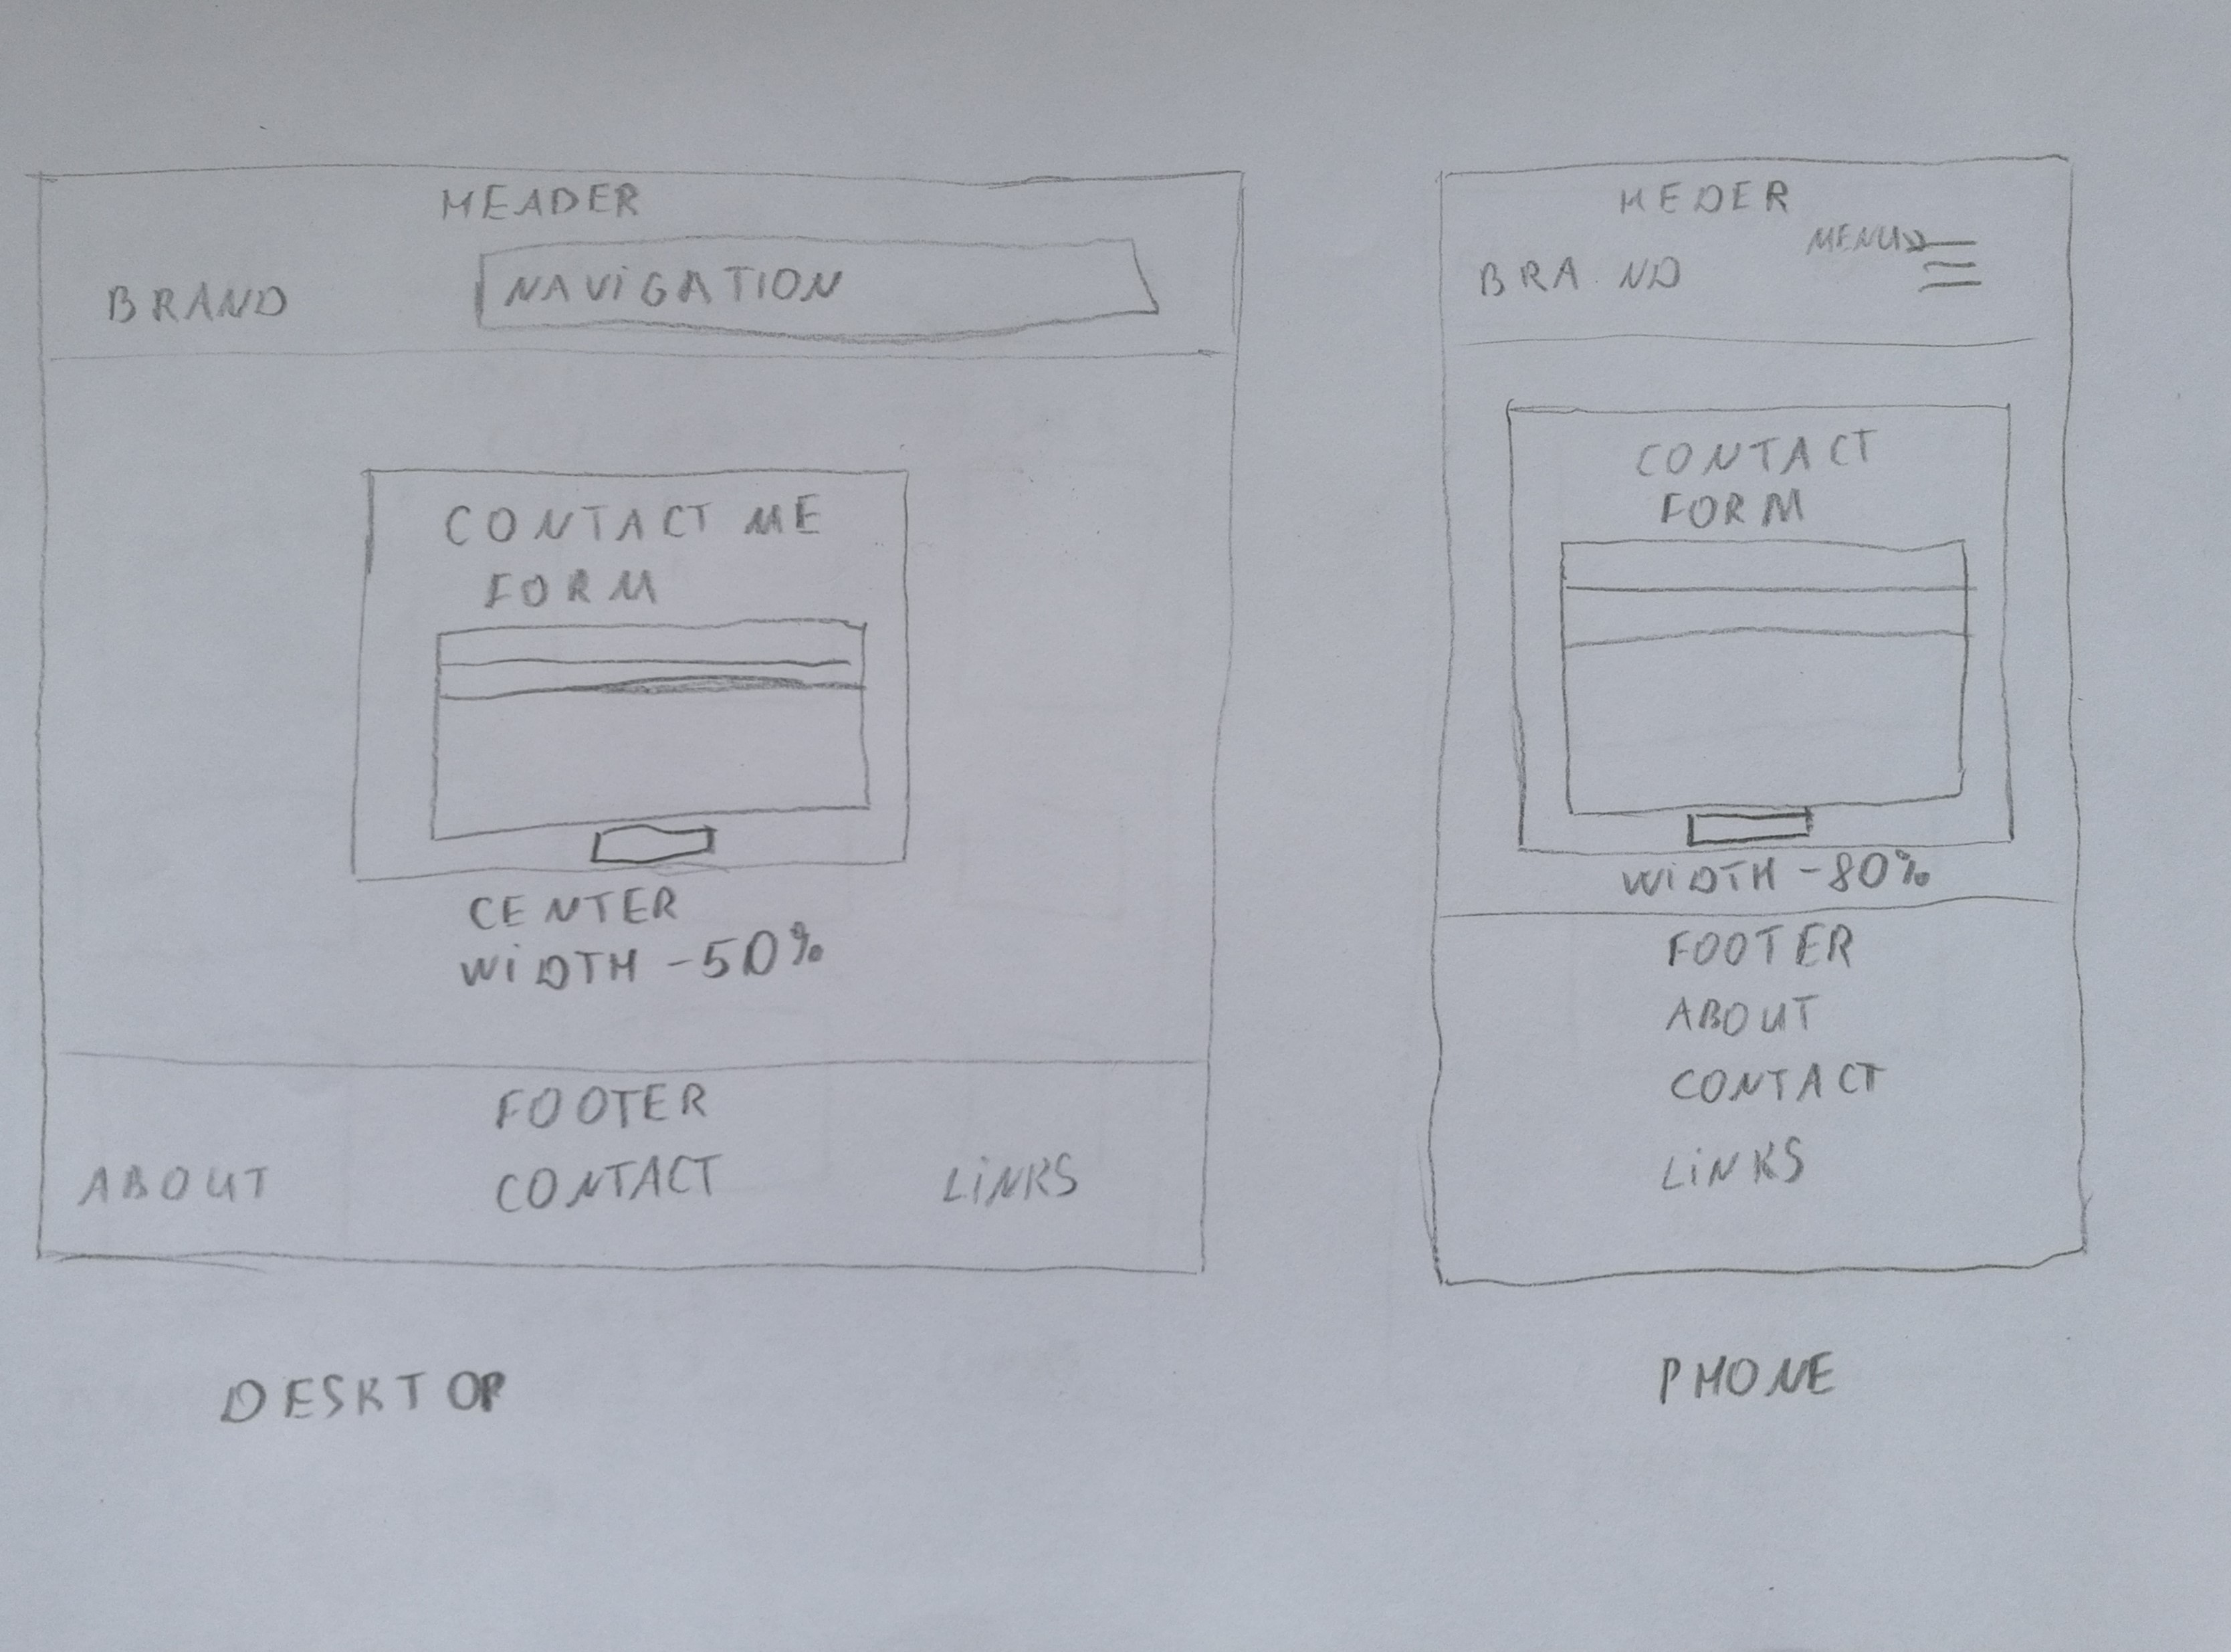 HEADER
BRAND
NAVIGATION
CONTACT ME
FORM
CENTER
WIDTH - 50%
FOOTER
ABOUT CONTACT LINKS
DESKTOP
HEDER
MENU
BRA ND
CONTACT
FORM
WIDTH - 80%
FOOTER
ABOUT
CONTACT
LINKS
PHONE